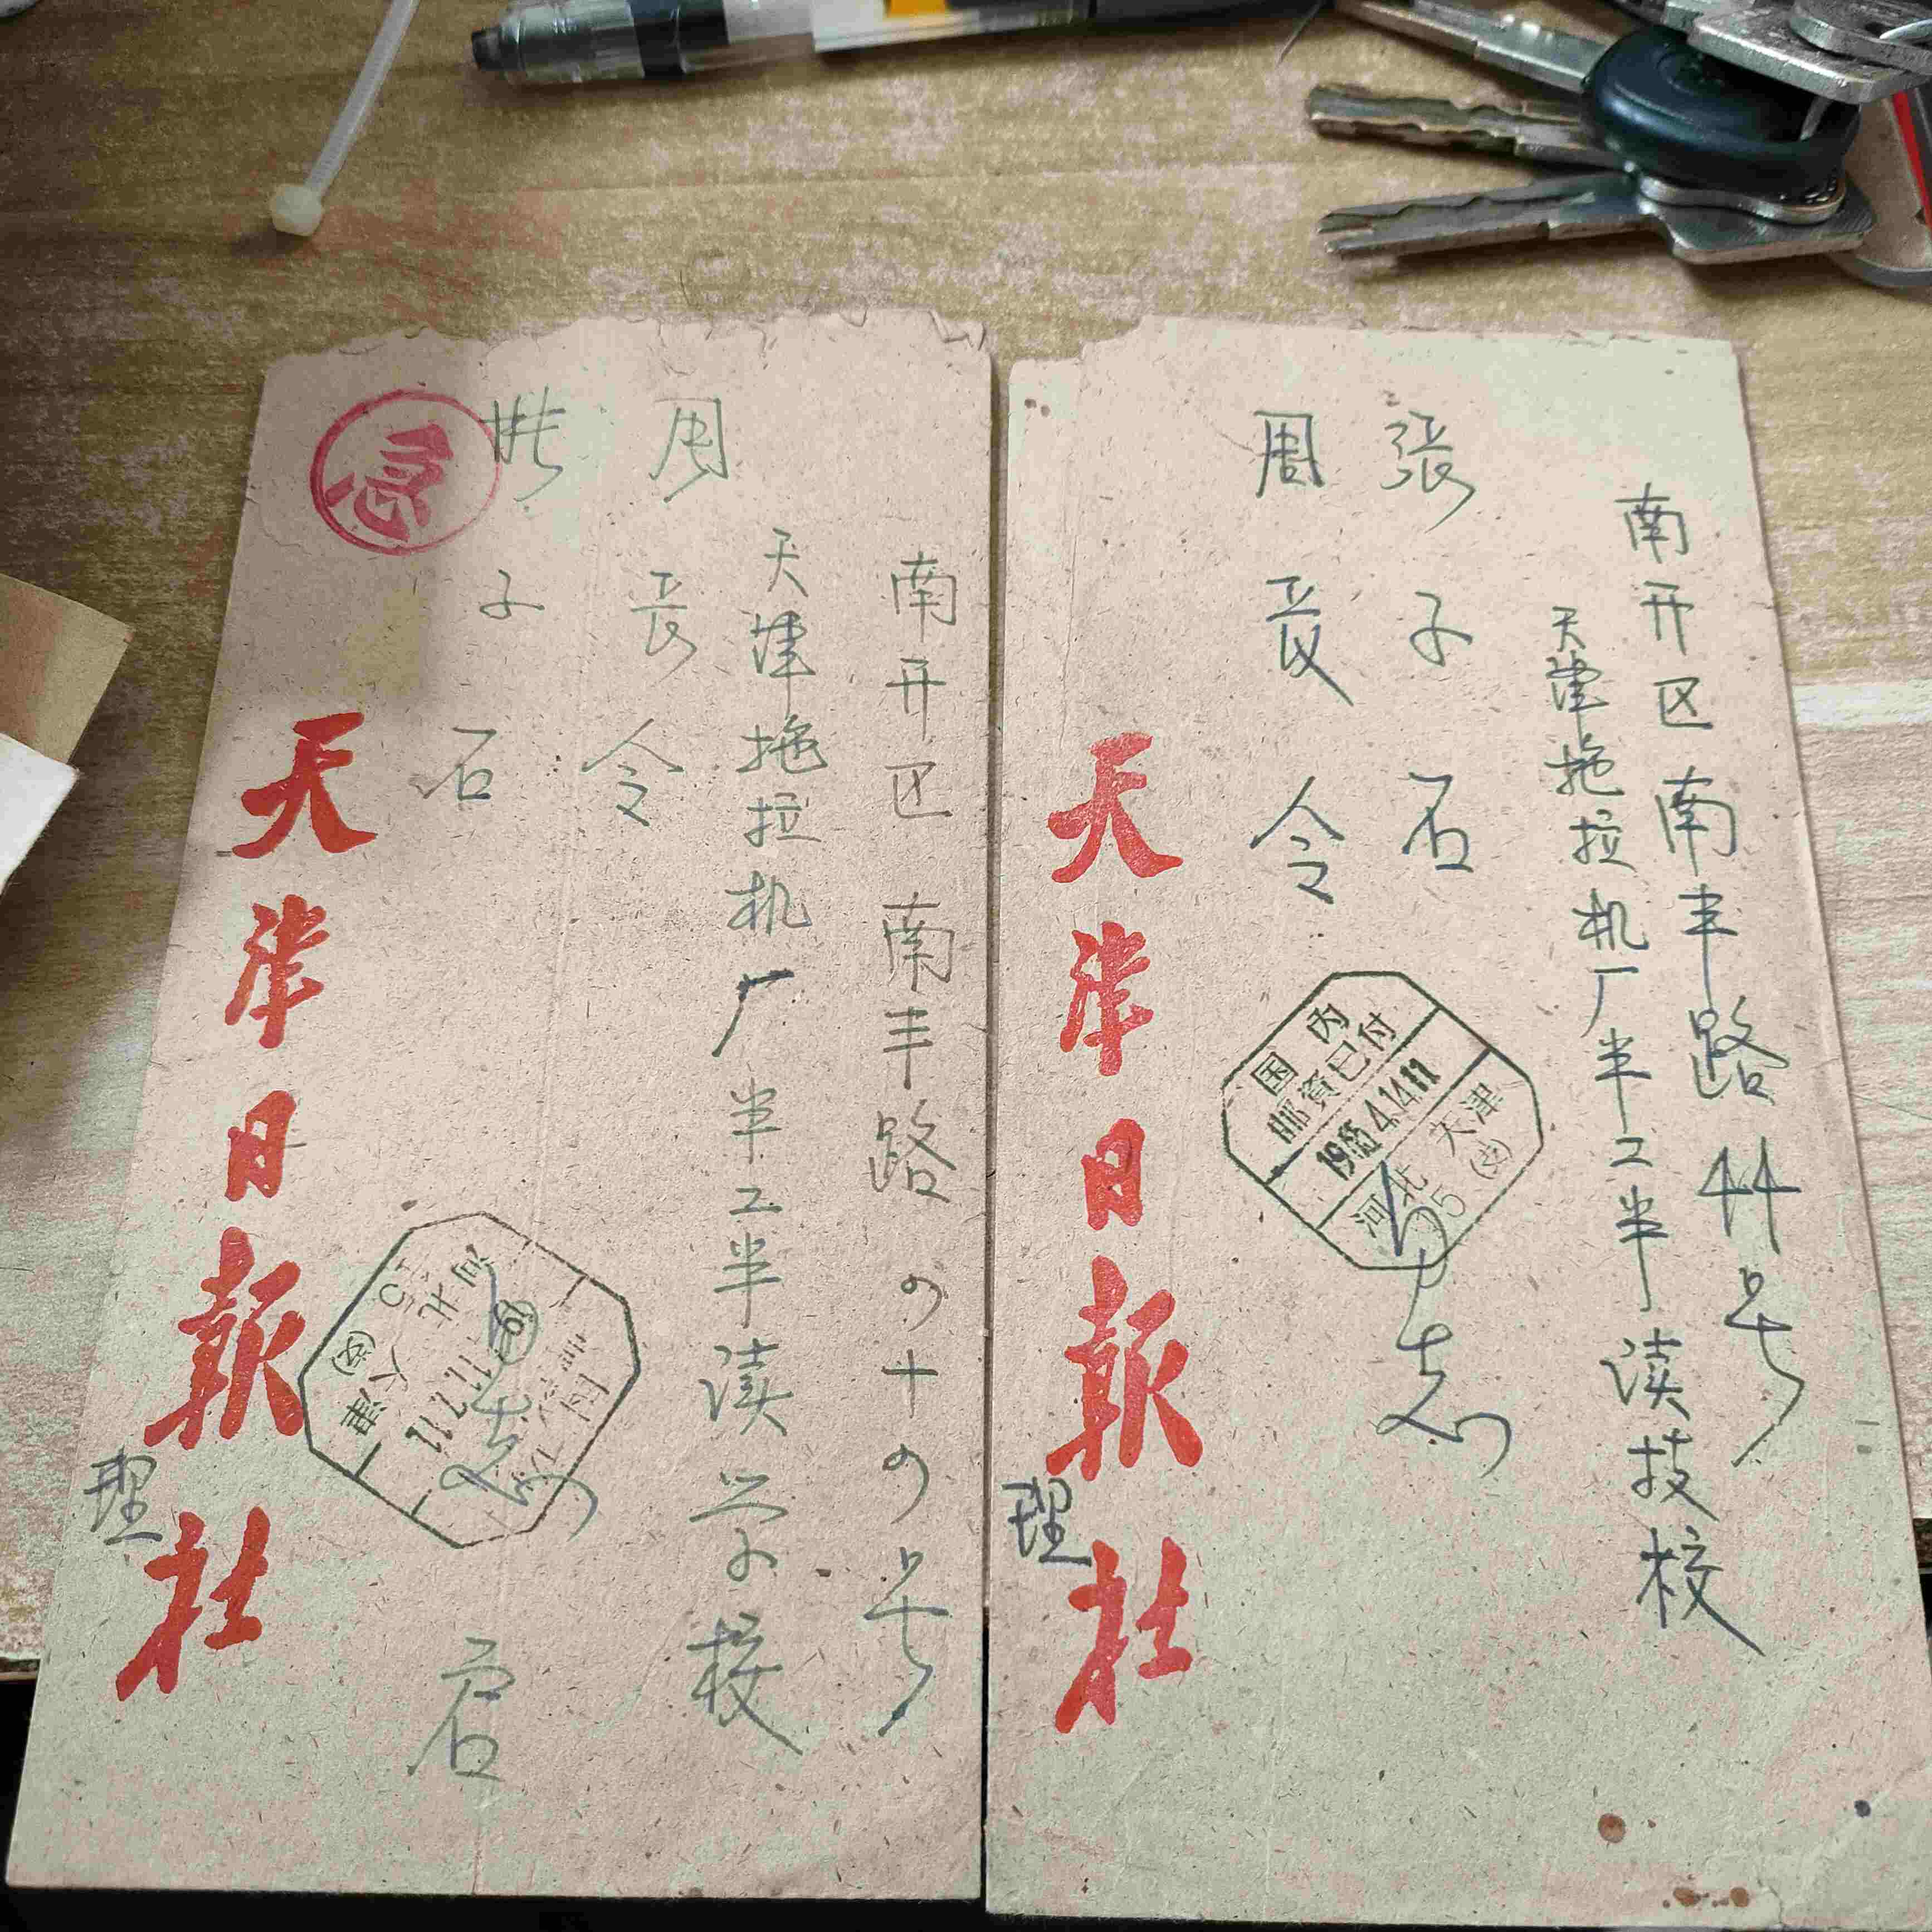 南开区南丰路四十四号
天津拖拉机厂半工半读学校
周长令
张子石
同志
启
急
天津日报社
理
河北 天津
15 (支)
南开区南丰路44号
天津拖拉机厂半工半读技校
张子石
周长令
同志
国内
邮资已付
1965.4.14.11
天津 (支)
河北 15
天津日报社
理